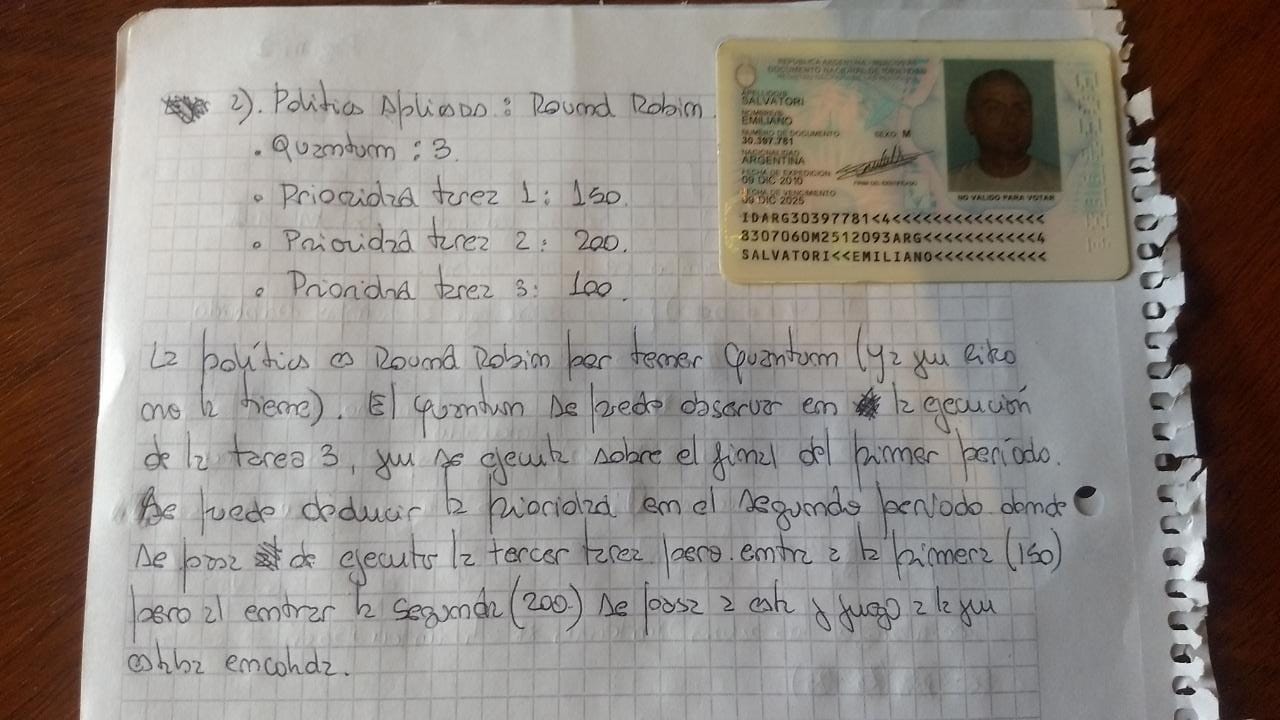 2). Política Aplicada : Round Robin.
. Quantum : 3.
• Prioridad tarea 1: 150.
• Prioridad tarea 2: 200.
• Prioridad tarea 3: 100.
La política es Round Robin por tener Quantum (ya que
no la tiene). El quantum se puede observar en la ejecución
de la tarea 3, que se ejecuta sobre el final del primer período.
Se puede deducir la prioridad en el segundo período donde
se pasa de ejecutar la tercer tarea pero entra a la primera (150)
pero al entrar la segunda (200) se pasa a esta y luego a la que
estaba
REPUBLICA ARGENTINA - MERCOSUR
DOCUMENTO NACIONAL DE IDENTIDAD
APELLIDO/S
SALVATORI
NOMBRE/S
EMILIANO
NUMERO DE DOCUMENTO SEXO M
30.397.781
NACIONALIDAD
ARGENTINA
FECHA DE EXPEDICION
09 DIC 2010
FECHA DE VENCIMIENTO
09 DIC 2025
NO VALIDO PARA VOTAR
IDARG30397781<4<<<<<<<<<<<<<<<
8307060M2512093ARG<<<<<<<<<<<4
SALVATORI<<EMILIANO<<<<<<<<<<<